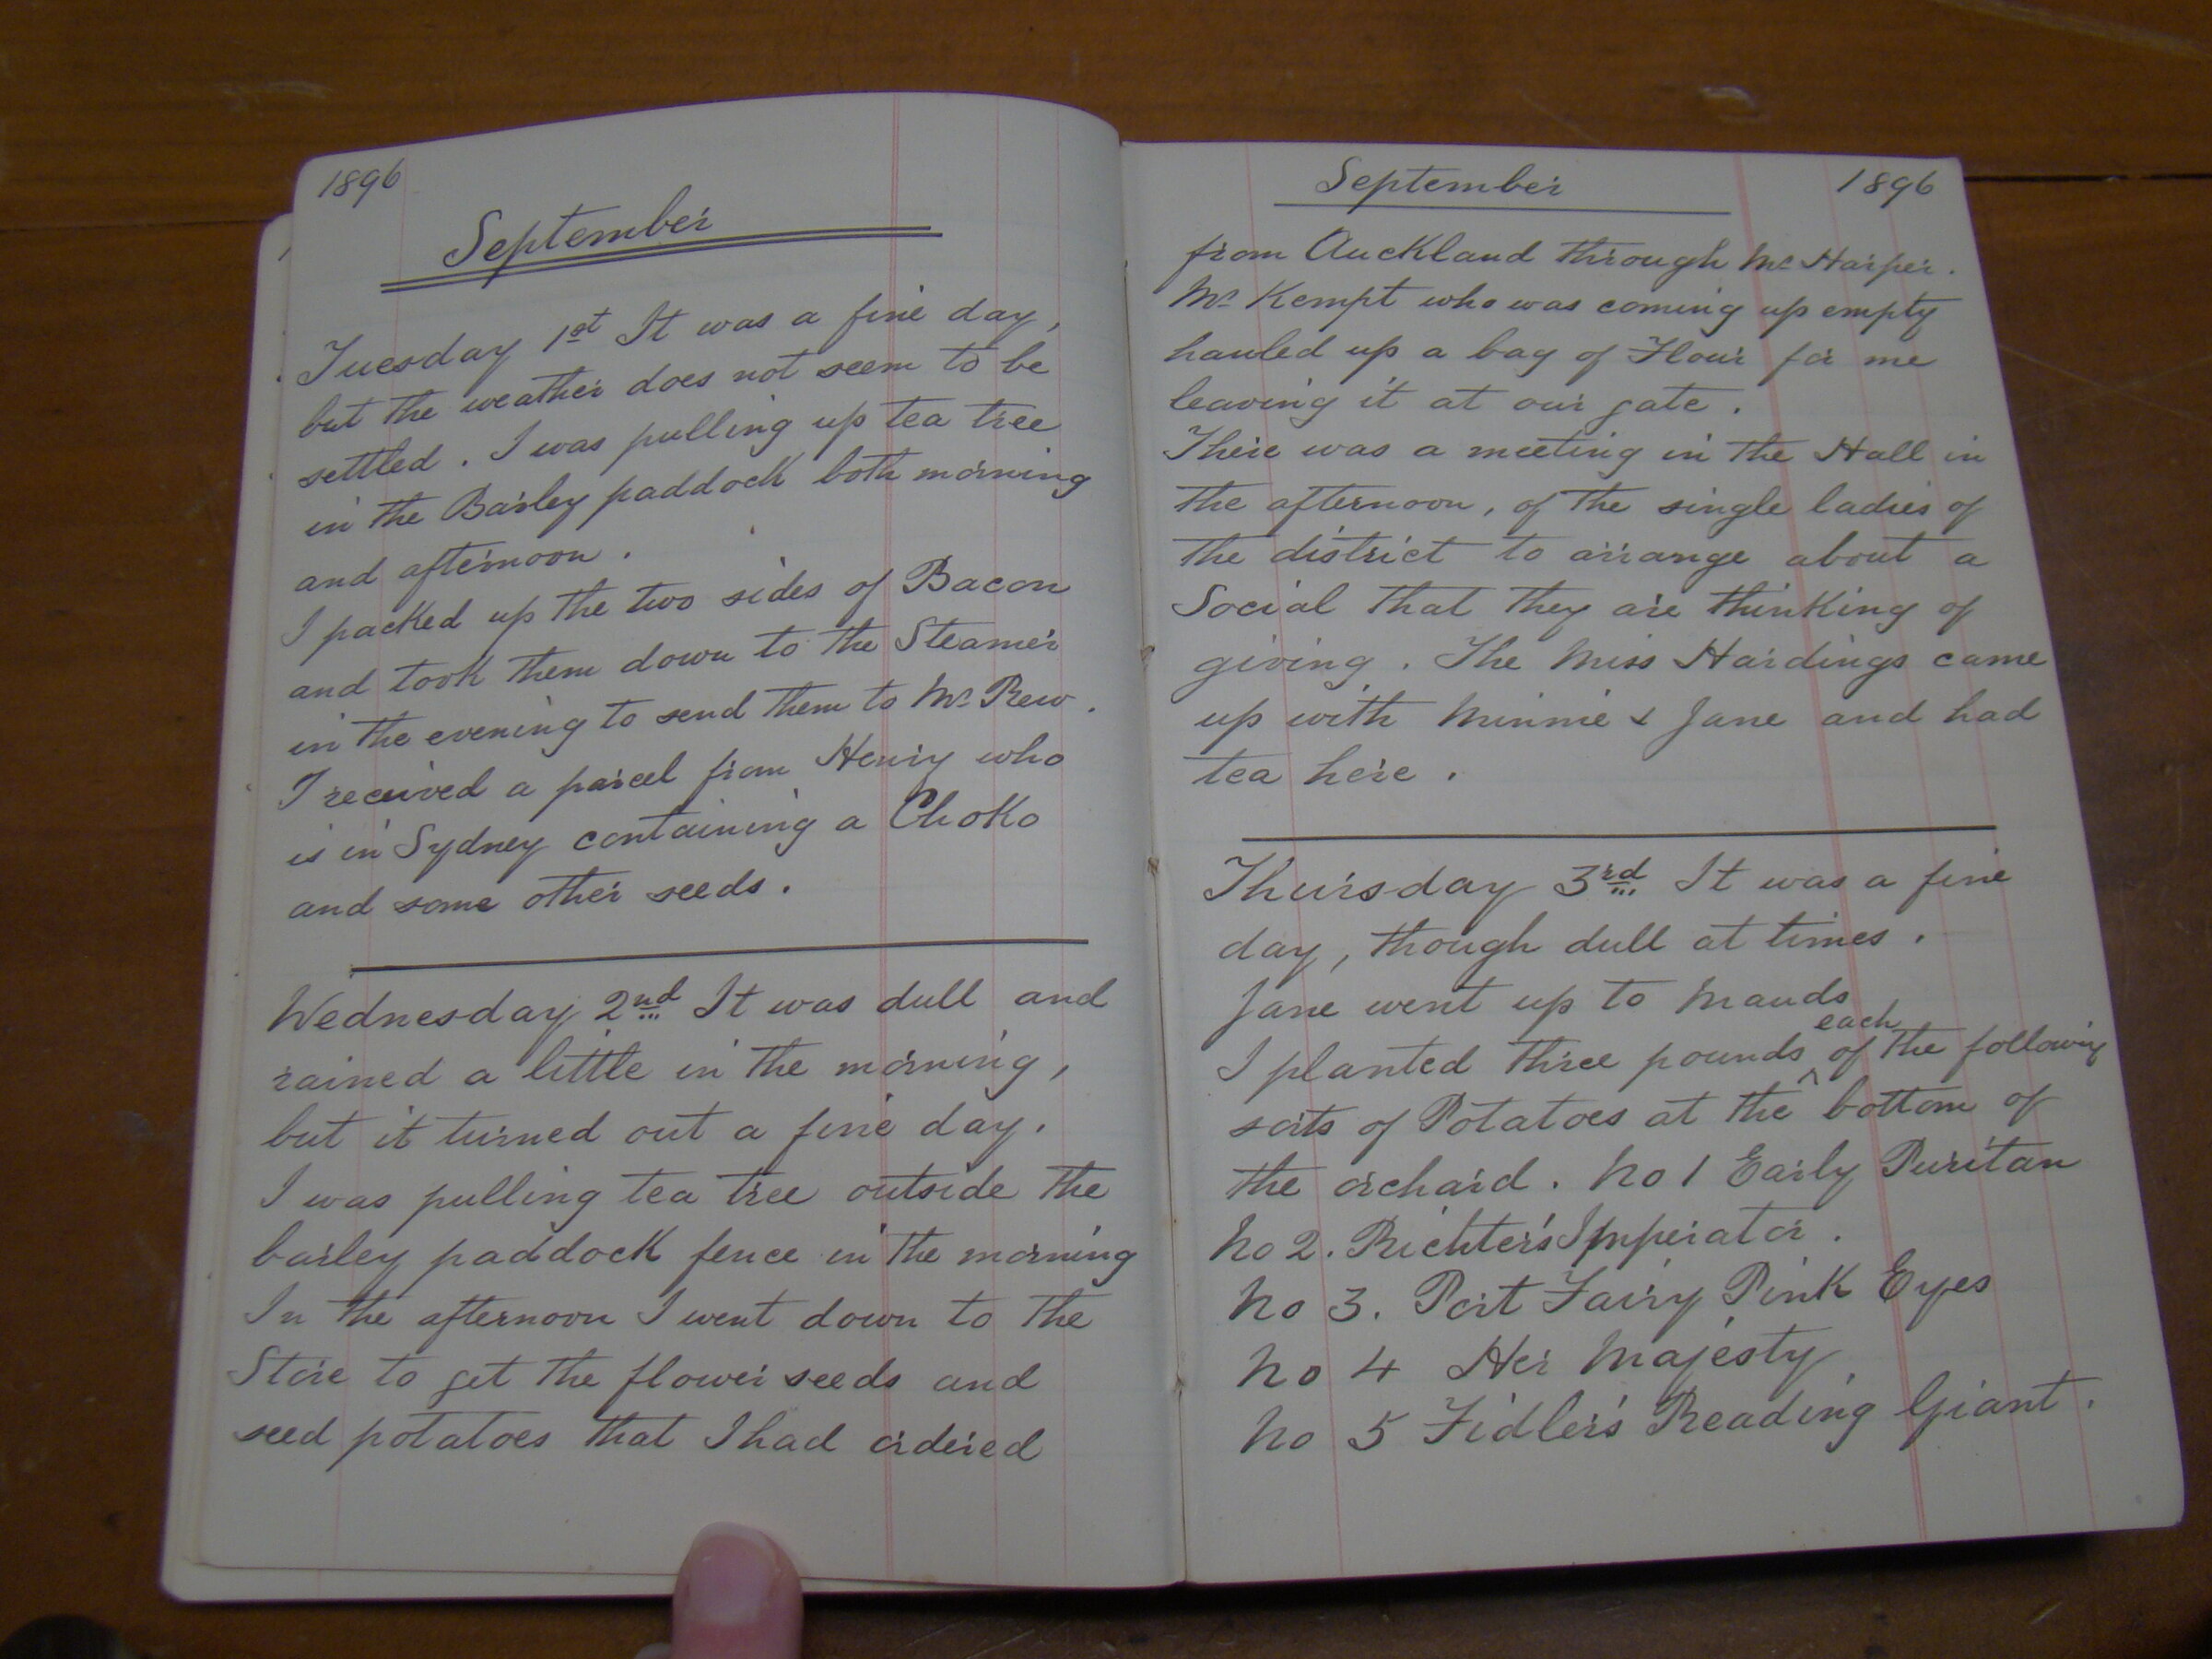 1896
September
Tuesday 1st It was a fine day,
but the weather does not seem to be
settled. I was pulling up tea tree
in the Barley paddock both morning
and afternoon.
I packed up the two sides of Bacon
and took them down to the Steamer
in the evening to send them to Mr Rew.
I received a parcel from Henry who
is in Sydney containing a Choko
and some other seeds.
Wednesday 2nd It was dull and
rained a little in the morning,
but it turned out a fine day.
I was pulling tea tree outside the
barley paddock fence in the morning
In the afternoon I went down to the
Store to get the flower seeds and
seed potatoes that I had ordered
September 1896
from Auckland through Mr Harper.
Mr Kempt who was coming up empty
hauled up a bag of Flour for me
leaving it at our gate.
There was a meeting in the Hall in
the afternoon, of the single ladies of
the district to arrange about a
Social that they are thinking of
giving. The Miss Hardings came
up with Minnie & Jane and had
tea here.
Thursday 3rd It was a fine
day, though dull at times.
Jane went up to Mauds
I planted three pounds each of the following
sorts of Potatoes at the bottom of
the orchard. No 1 Early Puritan
No 2. Richter's Imperator.
No 3. Port Fairy Pink Eyes
No 4 Her Majesty
No 5 Fidler's Reading Giant.